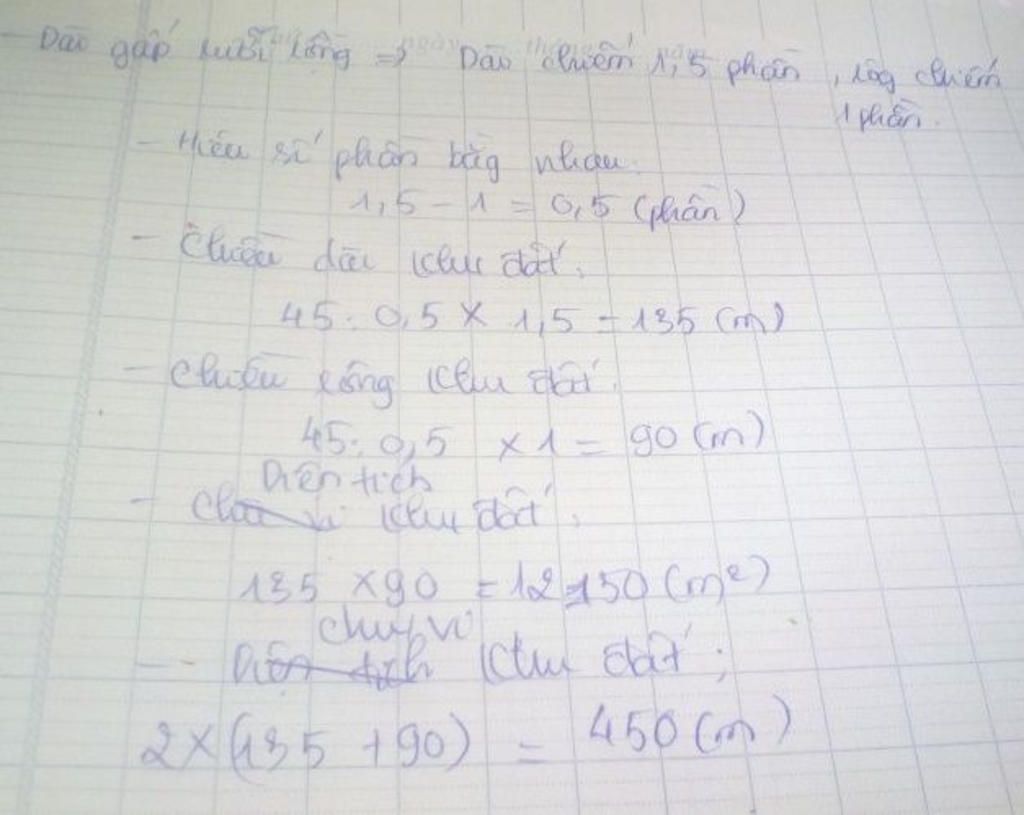 - Dài gấp rưỡi rộng => Dài chiếm 1,5 phần, rộg chiếm
1 phần.
- Hiệu số phần bằg nhau.
1,5 - 1 = 0,5 (phần)
- Chiều dài khu đất.
45 : 0,5 x 1,5 = 135 (m)
- Chiều rộng khu đất.
45 : 0,5 x 1 = 90 (m)
Diện tích
- khu đất :
135 x 90 = 12150 (m²)
chu vi
- Diện tích khu đất :
2 x (135 + 90) = 450 (m)